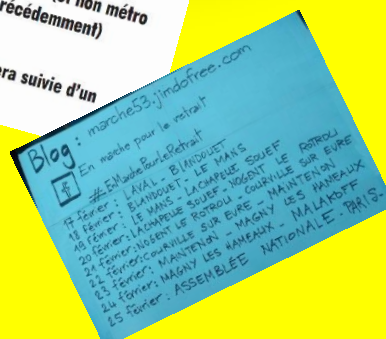 non métro
récédemment)
era suivie d'un
Blog : marche53.jimdofree.com
En marche pour le retrait
#EnMarchePourLeRetrait
17 février : LAVAL - BLANDOUET
18 février : BLANDOUET - LE MANS
19 février : LE MANS - LACHAPELLE SOUEF
20 février : LACHAPELLE SOUEF - NOGENT LE ROTROU
21 février : NOGENT LE ROTROU - COURVILLE SUR EVRE
22 février : COURVILLE SUR EVRE - MAINTENON
23 février : MAINTENON - MAGNY LES HAMEAUX
24 février : MAGNY LES HAMEAUX - MALAKOFF
25 février : ASSEMBLÉE NATIONALE - PARIS